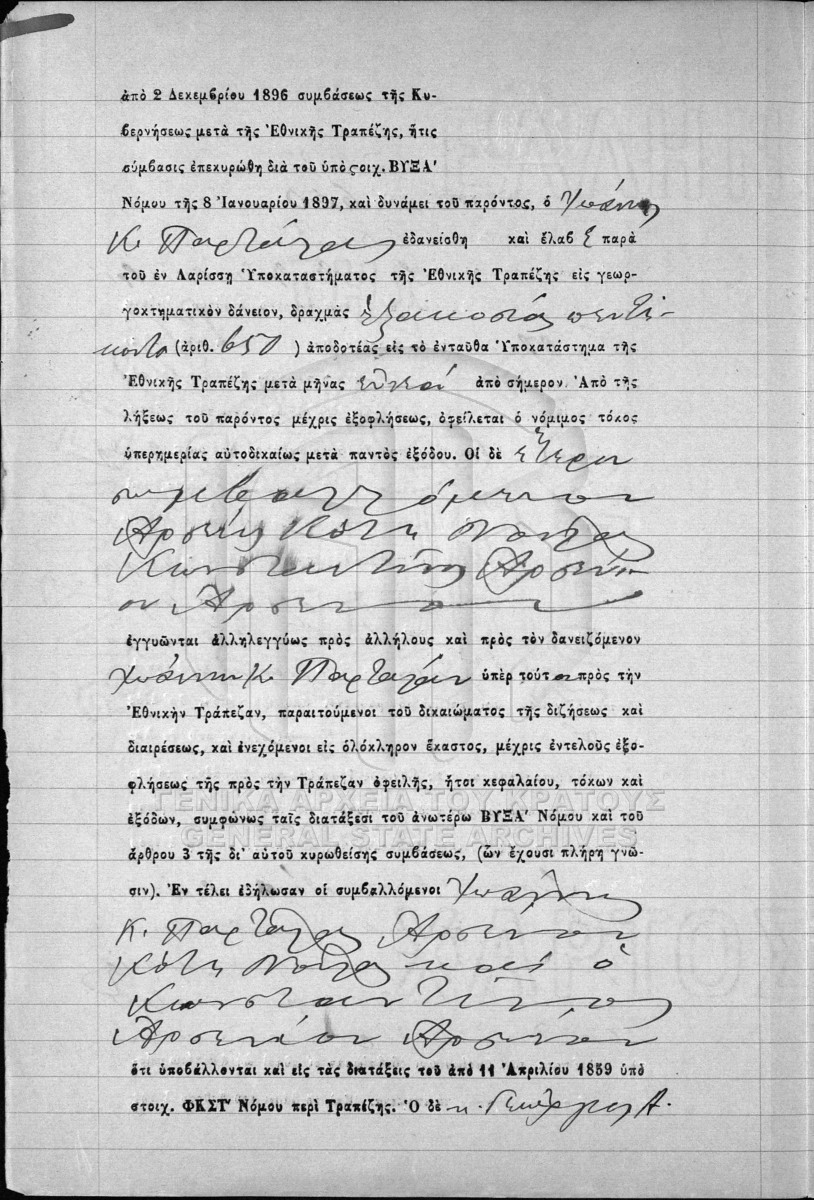 ἀπὸ 2 Δεκεμβρίου 1896 συμβάσεως τῆς Κυ-
βερνήσεως μετὰ τῆς Ἐθνικῆς Τραπέζης, ἥτις
σύμβασις ἐπεκυρώθη διὰ τοῦ ὑπὸ στοιχ. ΒΥΞΑ'
Νόμου τῆς 8 Ἰανουαρίου 1897, καὶ δυνάμει τοῦ παρόντος, ὁ Ἰωάννης
Κ. ἐδανείσθη καὶ ἔλαβε παρὰ
τοῦ ἐν Λαρίσσῃ Ὑποκαταστήματος τῆς Ἐθνικῆς Τραπέζης εἰς γεωρ-
γοκτηματικὸν δάνειον, δραχμὰς ἑξακοσίας πεντή-
κοντα (ἀριθ. 650 ) ἀποδοτέας εἰς τὸ ἐνταῦθα Ὑποκατάστημα τῆς
Ἐθνικῆς Τραπέζης μετὰ μῆνας ἀπὸ σήμερον. Ἀπὸ τῆς
λήξεως τοῦ παρόντος μέχρις ἐξοφλήσεως, ὀφείλεται ὁ νόμιμος τόκος
ὑπερημερίας αὐτοδικαίως μετὰ παντὸς ἐξόδου. Οἱ δὲ ἕτεροι
συμβαλλόμενοι
Κωνσταντῖνος Ἀρσενί-
ου Ἀρσενίου
ἐγγυῶνται ἀλληλεγγύως πρὸς ἀλλήλους καὶ πρὸς τὸν δανειζόμενον
Ἰωάννην Κ. ὑπὲρ τούτου πρὸς τὴν
Ἐθνικὴν Τράπεζαν, παραιτούμενοι τοῦ δικαιώματος τῆς διζήσεως καὶ
διαιρέσεως, καὶ ἐνεχόμενοι εἰς ὁλόκληρον ἕκαστος, μέχρις ἐντελοῦς ἐξο-
φλήσεως τῆς πρὸς τὴν Τράπεζαν ὀφειλῆς, ἤτοι κεφαλαίου, τόκων καὶ
ΓΕΝΙΚΑ ΑΡΧΕΙΑ ΤΟΥ ΚΡΑΤΟΥΣ
ἐξόδων, συμφώνως ταῖς διατάξεσι τοῦ ἀνωτέρω ΒΥΞΑ' Νόμου καὶ τοῦ
GENERAL STATE ARCHIVES
ἄρθρου 3 τῆς δι' αὐτοῦ κυρωθείσης συμβάσεως, (ὧν ἔχουσι πλήρη γνῶ-
σιν). Ἐν τέλει ἐδήλωσαν οἱ συμβαλλόμενοι Ἰωάννης
Κ.
καὶ ὁ
Κωνσταντῖνος
Ἀρσενίου Ἀρσενίου
ὅτι ὑποβάλλονται καὶ εἰς τὰς διατάξεις τοῦ ἀπὸ 11 Ἀπριλίου 1859 ὑπὸ
στοιχ. ΦΚΣΤ' Νόμου περὶ Τραπέζης. Ὁ δὲ κ. Γεώργιος Α.